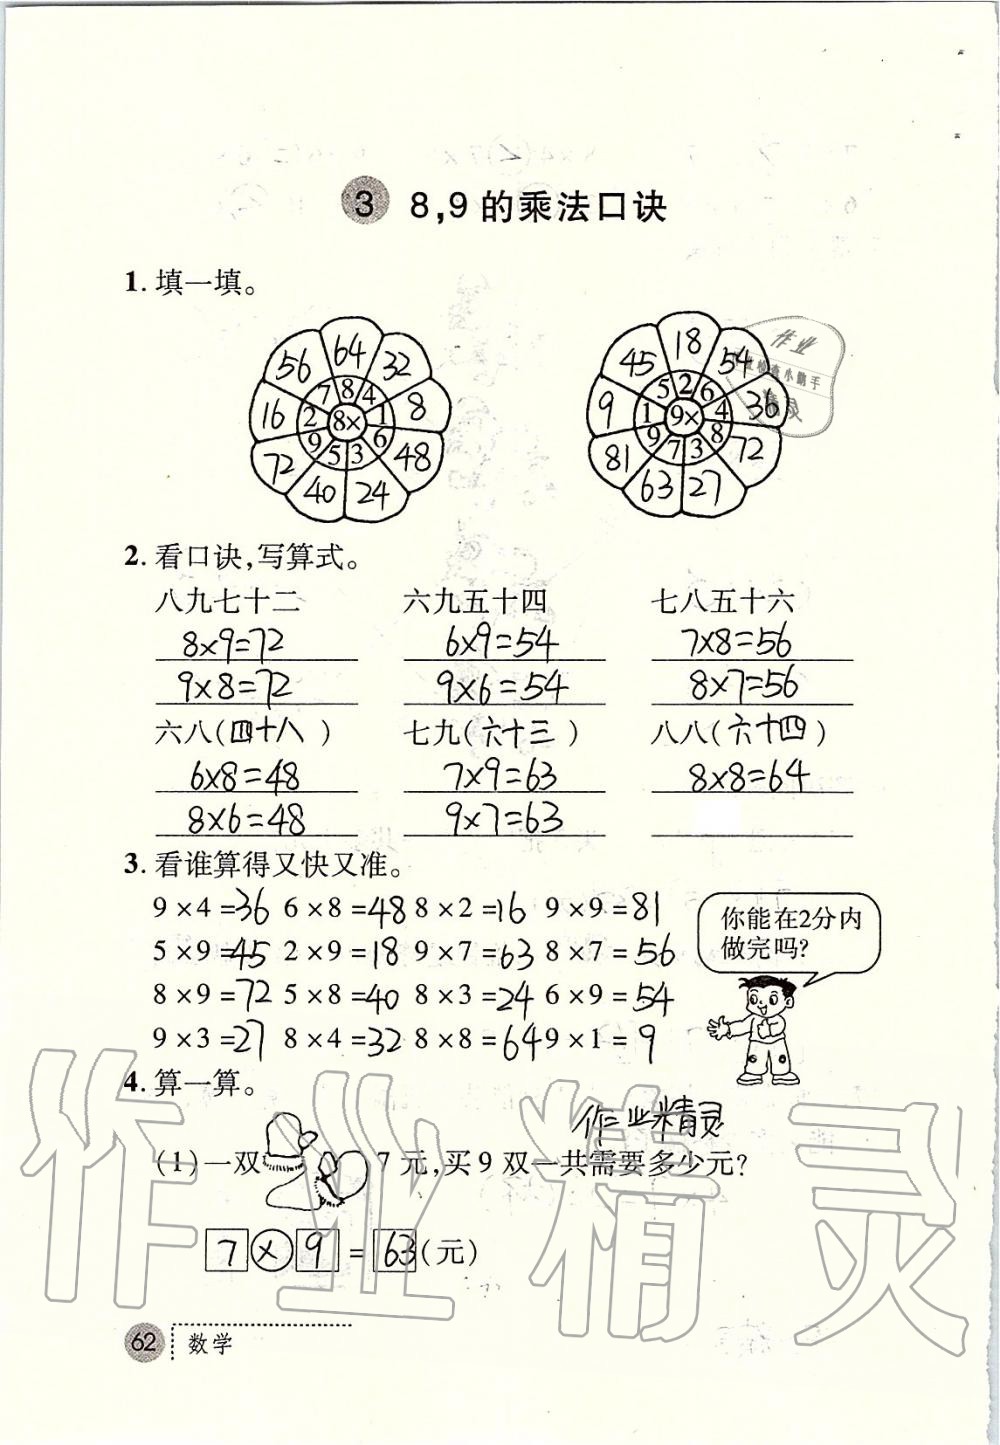 3 8,9的乘法口诀
1. 填一填。
8×
8 4 1 6 3 5 9 2 7
64 32 8 48 24 40 72 16 56
9×
2 6 4 8 3 7 9 1 5
18 54 36 72 27 63 81 9 45
2. 看口诀,写算式。
八九七十二 六九五十四 七八五十六
8×9=72 6×9=54 7×8=56
9×8=72 9×6=54 8×7=56
六八(四十八) 七九(六十三) 八八(六十四)
6×8=48 7×9=63 8×8=64
8×6=48 9×7=63
3. 看谁算得又快又准。
9×4=36 6×8=48 8×2=16 9×9=81
5×9=45 2×9=18 9×7=63 8×7=56
8×9=72 5×8=40 8×3=24 6×9=54
9×3=27 8×4=32 8×8=64 9×1=9
你能在2分内
做完吗?
4. 算一算。
作业精灵
(1)一双 7元,买9双一共需要多少元?
7×9=63(元)
62 数学
作业
精灵
作业精灵